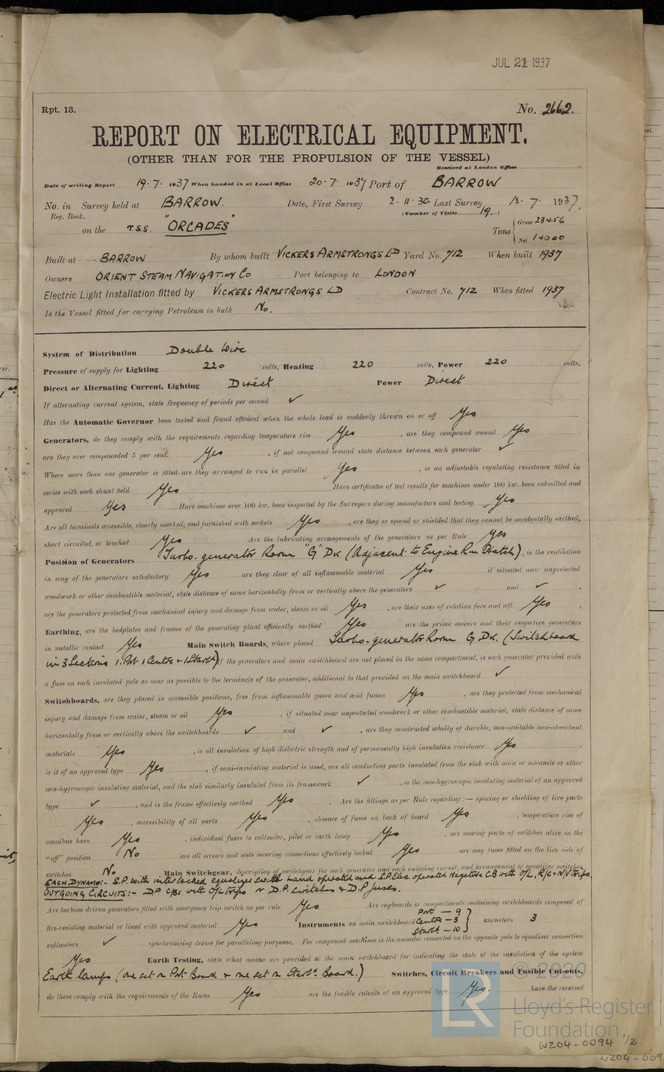 JUL 21 1937
Rpt. 13.
No. 2662.
REPORT ON ELECTRICAL EQUIPMENT.
(OTHER THAN FOR THE PROPULSION OF THE VESSEL)
Received at London Office
Date of writing Report 19.7.1937 When handed in at Local Office 20.7.1937 Port of BARROW
No. in Survey held at BARROW. Date, First Survey 2.11.36 Last Survey 13.7.1937.
Reg. Book. (Number of Visits 19.)
on the T.S.S. "ORCADES" Tons { Gross 23456
Net 14000
Built at BARROW By whom built VICKERS ARMSTRONGS LD Yard No. 712 When built 1937
Owners ORIENT STEAM NAVIGATION CO Port belonging to LONDON
Electric Light Installation fitted by VICKERS ARMSTRONGS LD Contract No. 712 When fitted 1937
Is the Vessel fitted for carrying Petroleum in bulk No.
System of Distribution Double Wire
Pressure of supply for Lighting 220 volts, Heating 220 volts, Power 220 volts.
Direct or Alternating Current, Lighting Direct Power Direct
If alternating current system, state frequency of periods per second ✓
Has the Automatic Governor been tested and found efficient when the whole load is suddenly thrown on or off Yes
Generators, do they comply with the requirements regarding temperature rise Yes, are they compound wound Yes
are they over compounded 5 per cent. Yes, if not compound wound state distance between each generator ✓
Where more than one generator is fitted are they arranged to run in parallel Yes, is an adjustable regulating resistance fitted in
series with each shunt field Yes Have certificates of test results for machines under 100 kw. been submitted and
approved Yes Have machines over 100 kw. been inspected by the Surveyors during manufacture and testing Yes
Are all terminals accessible, clearly marked, and furnished with sockets Yes, are they so spaced or shielded that they cannot be accidentally earthed,
short circuited, or touched Yes Are the lubricating arrangements of the generators as per Rule Yes
Position of Generators Turbo-generator Room "G" Dk (Adjacent to Engine Rm Hatch), is the ventilation
in way of the generators satisfactory Yes are they clear of all inflammable material Yes, if situated near unprotected
woodwork or other combustible material, state distance of same horizontally from or vertically above the generators ✓ and ✓,
are the generators protected from mechanical injury and damage from water, steam or oil Yes, are their axes of rotation fore and aft Yes.
Earthing, are the bedplates and frames of the generating plant efficiently earthed Yes are the prime movers and their respective generators
in metallic contact Yes Main Switch Boards, where placed Turbo-generator Room G Dk. (Switchboard
in 3 Sections 1 Port 1 Centre & 1 Starbd) if the generators and main switchboard are not placed in the same compartment, is each generator provided with
a fuse on each insulated pole as near as possible to the terminals of the generator, additional to that provided on the main switchboard ✓
Switchboards, are they placed in accessible positions, free from inflammable gases and acid fumes Yes, are they protected from mechanical
injury and damage from water, steam or oil Yes, if situated near unprotected woodwork or other combustible material, state distance of same
horizontally from or vertically above the switchboards ✓ and ✓, are they constructed wholly of durable, non-ignitable non-absorbent
materials Yes, is all insulation of high dielectric strength and of permanently high insulation resistance Yes.
is it of an approved type Yes, if semi-insulating material is used, are all conducting parts insulated from the slab with mica or micanite or other
non-hygroscopic insulating material, and the slab similarly insulated from its framework ✓, is the non-hygroscopic insulating material of an approved
type ✓, and is the frame effectively earthed Yes. Are the fittings as per Rule regarding:— spacing or shielding of live parts
Yes, accessibility of all parts Yes, absence of fuses on back of board Yes, temperature rise of
omnibus bars Yes, individual fuses to voltmeter, pilot or earth lamp Yes, are moving parts of switches alive in the
"off" position No are all screws and nuts securing connections effectively locked Yes are any fuses fitted on the live side of
switches No Main Switchgear, description of switches for each generator and each outgoing circuit, and arrangement of equaliser switches
EACH DYNAMO:- S.P. with interlocked equaliser switch hand operated and S.P. elec operated negative CB with O/L, R/C & N/V trips.
OUTGOING CIRCUITS:- D.P. C/Bs with O/L trips & D.P. switches & D.P. fuses.
Are turbine driven generators fitted with emergency trip switch as per rule Yes Are cupboards or compartments containing switchboards composed of
fire-resisting material or lined with approved material Yes Instruments on main switchboard Port - 9 Centre - 3 Starbd - 10 } ammeters 3
voltmeters ✓ synchronising device for paralleling purposes. For compound machines is the ammeter connected on the opposite pole to equaliser connection
Yes Earth Testing, state what means are provided at the main switchboard for indicating the state of the insulation of the system
Earth lamps (one set on Port Board & one set on Starbd. Board.) Switches, Circuit Breakers and Fusible Cut-outs,
do these comply with the requirements of the Rules Yes are the fusible cutouts of an approved type Yes, have the received
© 2020
LR Lloyd's Register
Foundation
W204-0094 1/2
W204-009